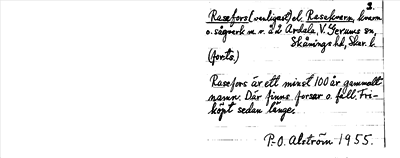 3.
Rasefors (vanligast) el. Rasekvarn, kvarn
o. sågverk m. v. å ä Ardala, V. Gerums sn,
Skånings hd, Skar. l.
(forts.)
Rasefors är ett minst 100 år gammalt
namn. Där finns forsar o. fall. Fri-
köpt sedan länge.
P-O. Alström 1955.